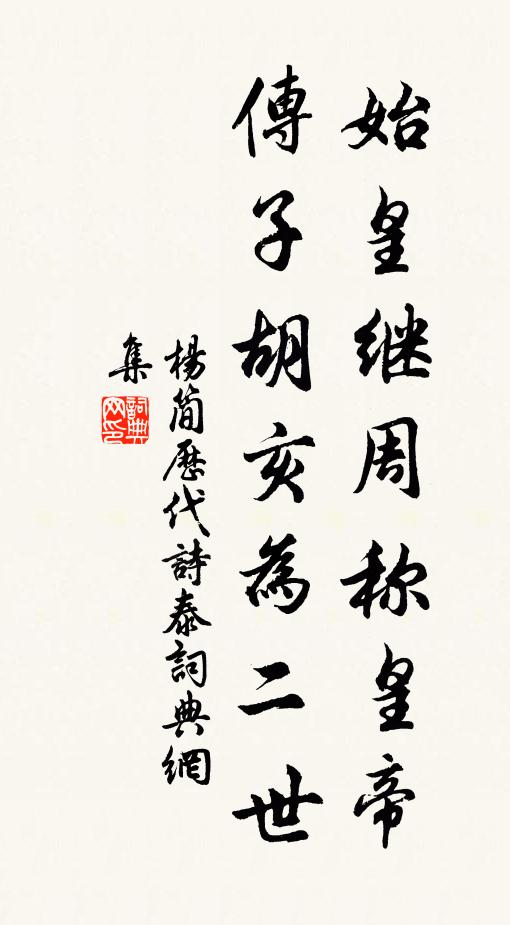 始皇继周称皇帝
傳子胡亥為二世
楊简歷代詩泰詞典網
集
詞典
网印